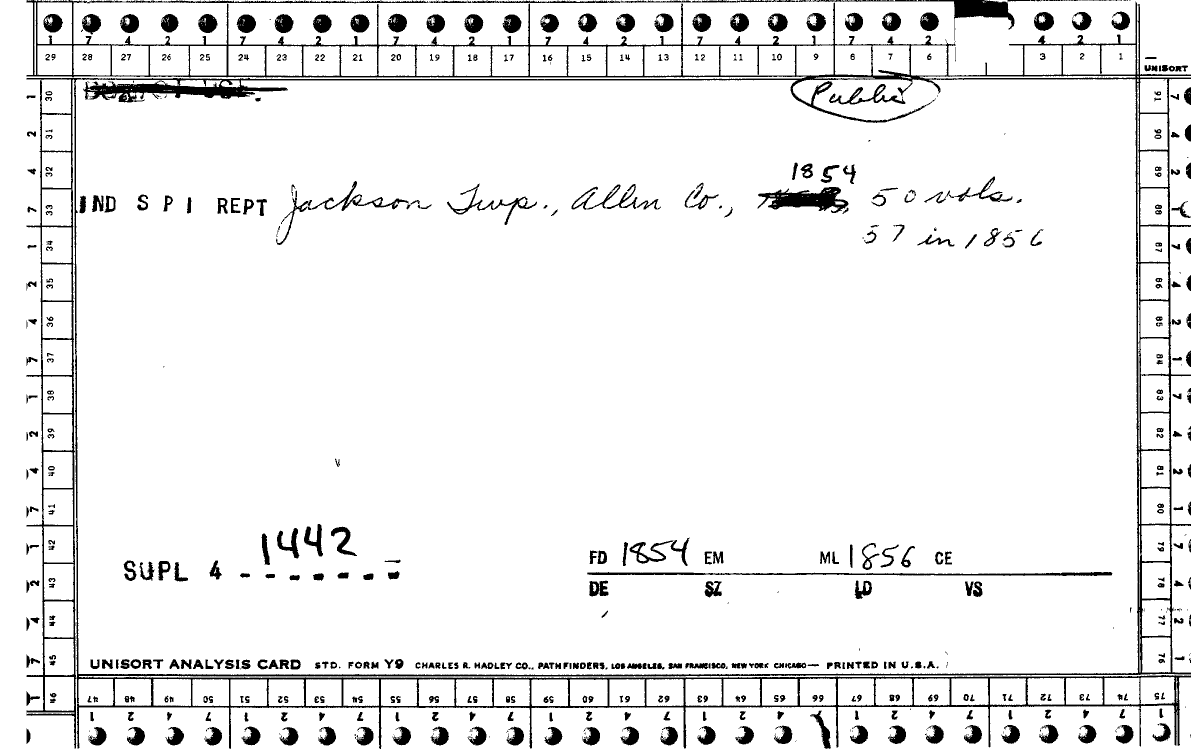 1 7 4 2 1 7 4 2 1 7 4 2 1 7 4 2 1 7 4 2 1 7 4 2 4 2 1
29 28 27 26 25 24 23 22 21 20 19 18 17 16 15 14 13 12 11 10 9 8 7 6 3 2 1
UNISORT
Public
1854
IND S P I REPT Jackson Twp., Allen Co., 50 vols.
57 in 1856
1442
SUPL 4 - - - - - - -
FD 1854 EM ML 1856 CE
DE SZ LD VS
UNISORT ANALYSIS CARD STD. FORM Y9 CHARLES R. HADLEY CO., PATHFINDERS, LOS ANGELES, SAN FRANCISCO, NEW YORK CHICAGO — PRINTED IN U.S.A.
30 31 32 33 34 35 36 37 38 39 40 41 42 43 44 45 46
91 90 89 88 87 86 85 84 83 82 81 80 79 78 77 76 75
47 48 49 50 51 52 53 54 55 56 57 58 59 60 61 62 63 64 65 66 67 68 69 70 71 72 73 74